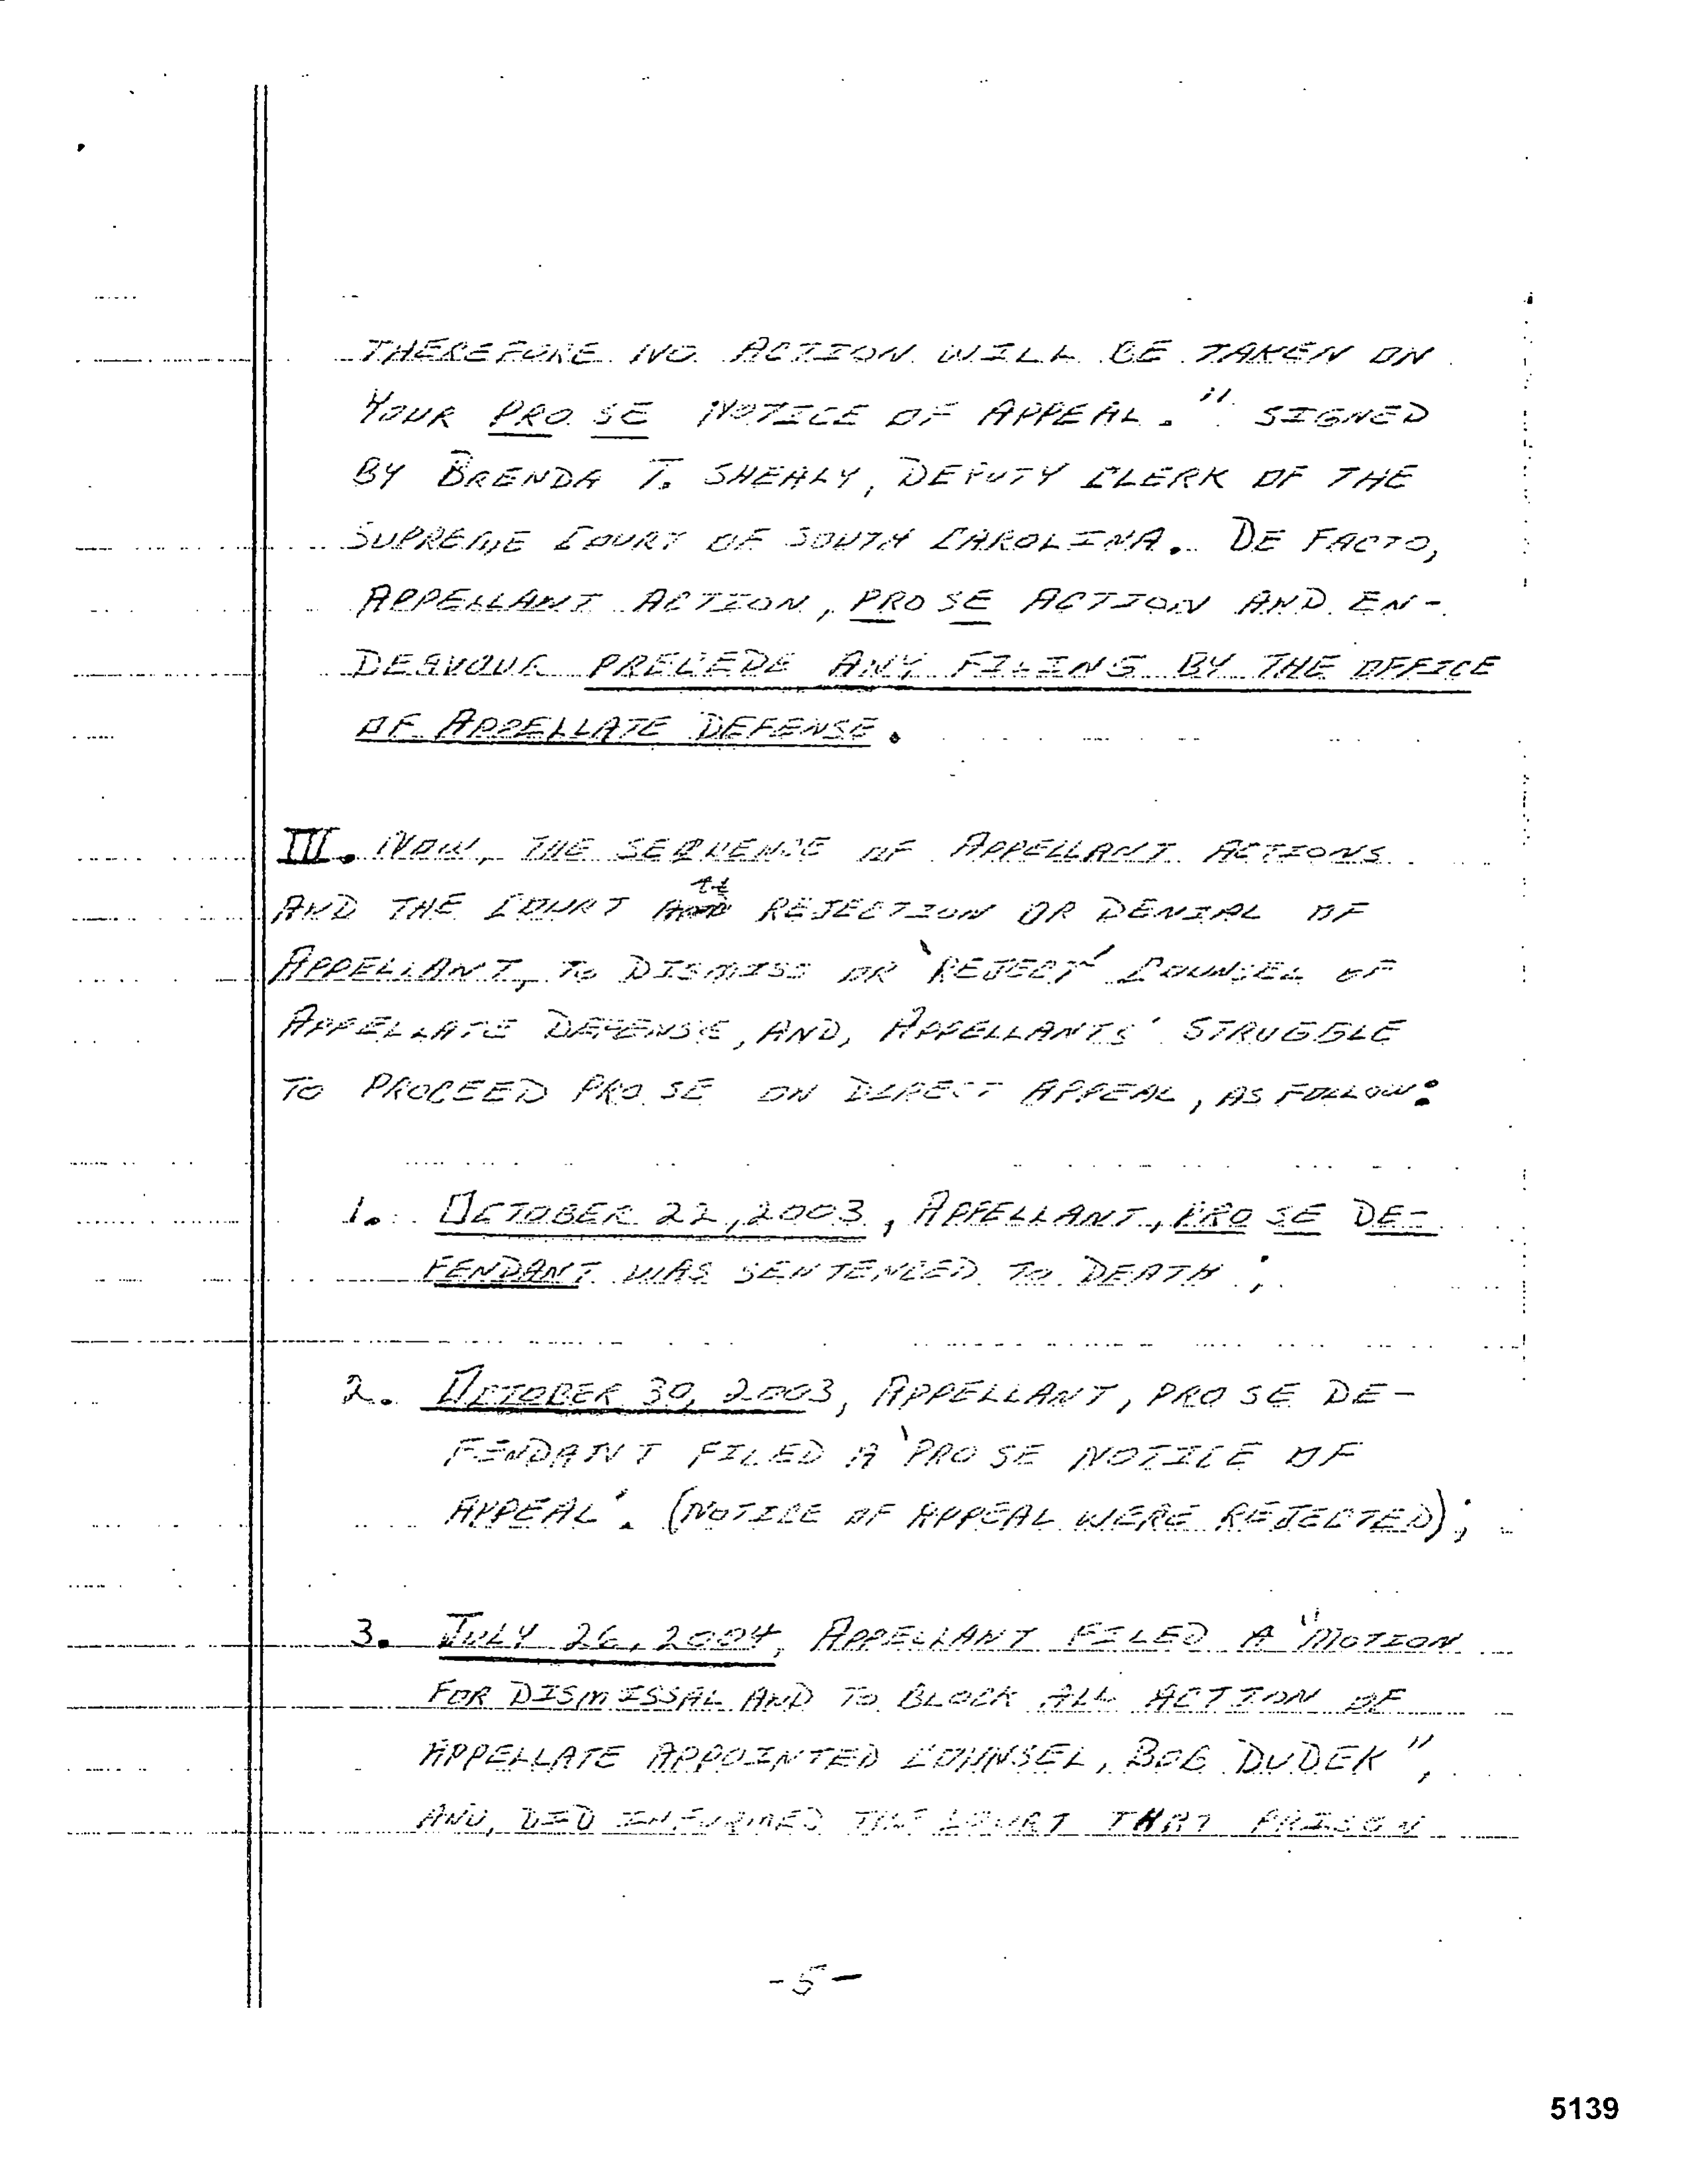 THEREFORE NO ACTION WILL BE TAKEN ON
YOUR PRO SE NOTICE OF APPEAL." SIGNED
BY BRENDA T. SHEALY, DEPUTY CLERK OF THE
SUPREME COURT OF SOUTH CAROLINA. DE FACTO,
APPELLANT ACTION, PRO SE ACTION AND EN-
DEAVOUR PRECEDE ANY FILING BY THE OFFICE
OF APPELLATE DEFENSE.
III. NOW, THE SEQUENCE OF APPELLANT ACTIONS
AND THE COURT REJECTION OR DENIAL OF
APPELLANT, TO DISMISS OR 'REJECT' COUNSEL OF
APPELLATE DEFENSE, AND, APPELLANTS' STRUGGLE
TO PROCEED PRO SE ON DIRECT APPEAL, AS FOLLOW:
1. OCTOBER 22, 2003, APPELLANT, PRO SE DE-
FENDANT WAS SENTENCED TO DEATH;
2. OCTOBER 30, 2003, APPELLANT, PRO SE DE-
FENDANT FILED A 'PRO SE NOTICE OF
APPEAL'. (NOTICE OF APPEAL WERE REJECTED);
3. JULY 26, 2004, APPELLANT FILED A "MOTION
FOR DISMISSAL AND TO BLOCK ALL ACTION OF
APPELLATE APPOINTED COUNSEL, BOB DUDEK",
AND, DID INFORMED THE COURT THAT PRISON
-5-
5139